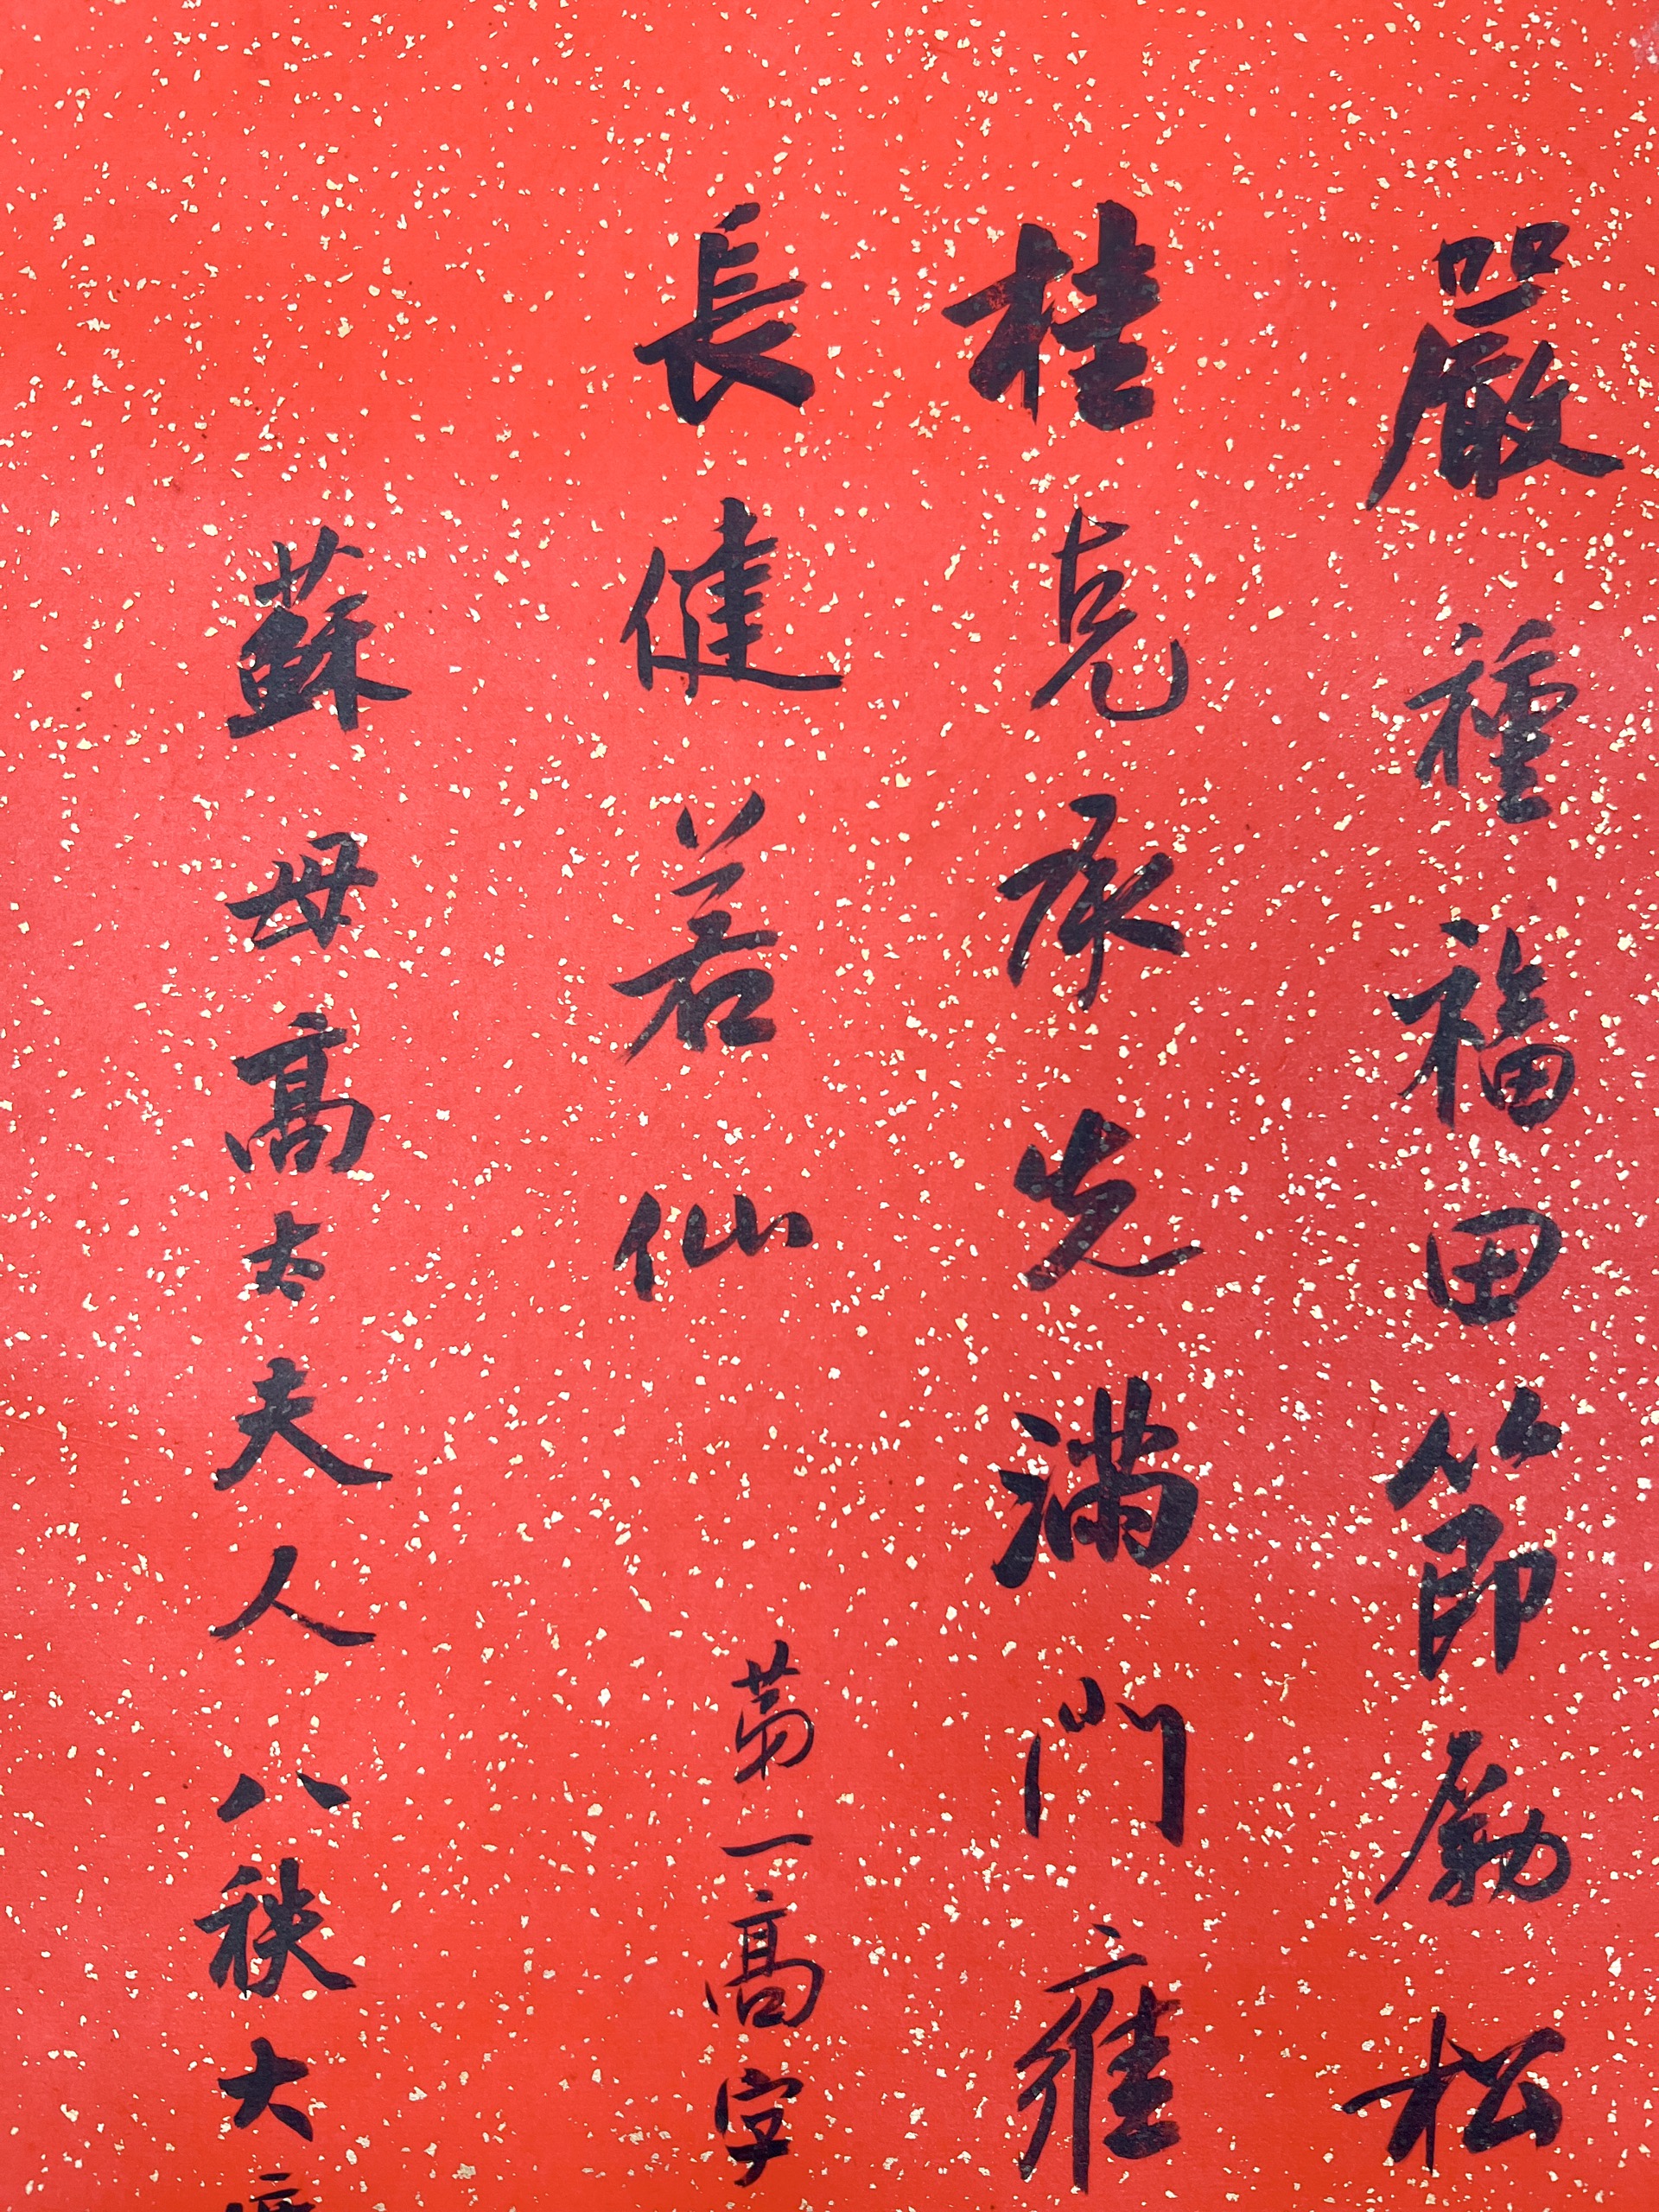 嚴種福田節勵松
桂克承先滿門雍
長健若仙　第一高字
蘇母高太夫人八秩大